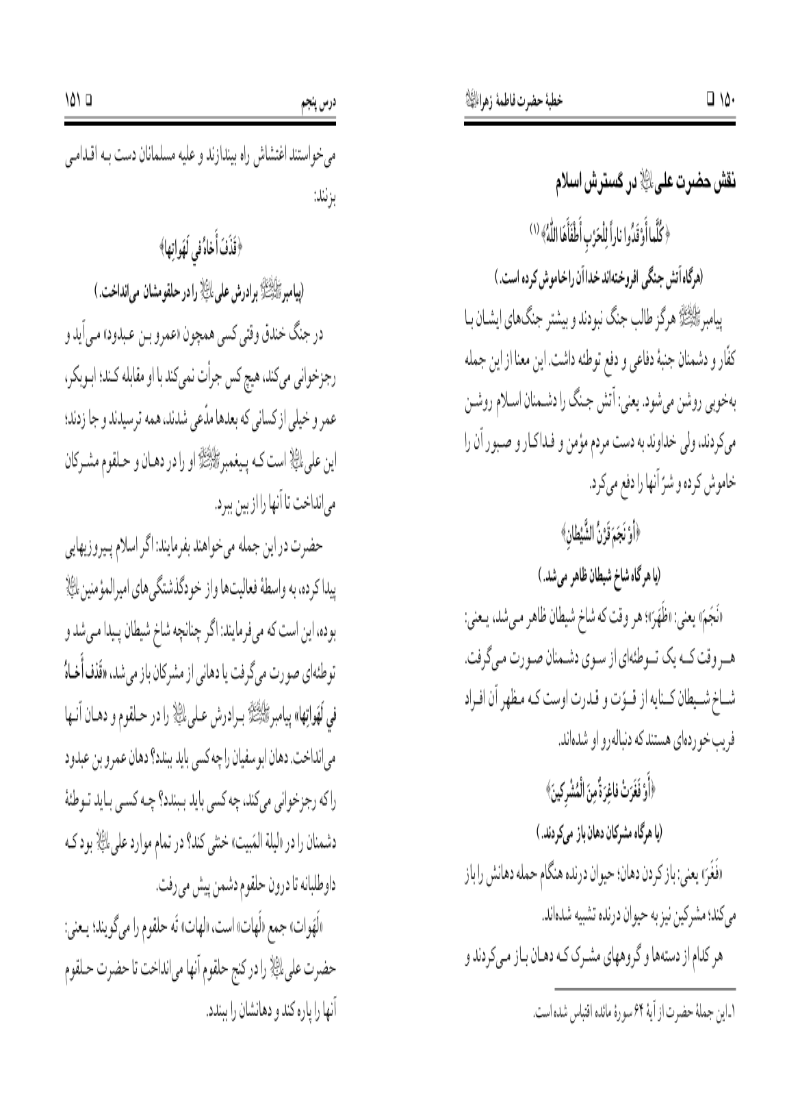 ۱۵۰ ❑ خطبهٔ حضرت فاطمهٔ زهرا
نقش حضرت علی در گسترش اسلام
﴿كُلَّما أَوْقَدُوا ناراً لِلْحَرْبِ أَطْفَأَهَا اللهُ﴾(۱)
(هرگاه آتش جنگی افروخته‌اند خدا آن را خاموش کرده است.)
پیامبرﷺ هرگز طالب جنگ نبودند و بیشتر جنگ‌های ایشان با
کفّار و دشمنان جنبهٔ دفاعی و دفع توطئه داشت. این معنا از این جمله
به‌خوبی روشن می‌شود. یعنی: آتش جنگ را دشمنان اسلام روشن
می‌کردند، ولی خداوند به دست مردم مؤمن و فداکار و صبور آن را
خاموش کرده و شرّ آنها را دفع می‌کرد.
﴿أَوْ نَجَمَ قَرْنُ الشَّيْطانِ﴾
(یا هرگاه شاخ شیطان ظاهر می‌شد.)
«نَجَمَ» یعنی: «ظَهَرَ»؛ هر وقت که شاخ شیطان ظاهر می‌شد، یعنی:
هر وقت که یک توطئه‌ای از سوی دشمنان صورت می‌گرفت.
شاخ شیطان کنایه از قوّت و قدرت اوست که مظهر آن افراد
فریب‌خورده‌ای هستند که دنباله‌رو او شده‌اند.
﴿أَوْ فَغَرَتْ فاغِرَةٌ مِنَ الْمُشْرِكينَ﴾
(یا هرگاه مشرکان دهان باز می‌کردند.)
«فَغَرَ» یعنی: باز کردن دهان؛ حیوان درنده هنگام حمله دهانش را باز
می‌کند؛ مشرکین نیز به حیوان درنده تشبیه شده‌اند.
هر کدام از دسته‌ها و گروههای مشرک که دهان باز می‌کردند و
۱ـ این جملهٔ حضرت از آیهٔ ۶۴ سورهٔ مائده اقتباس شده است.
درس پنجم ❑ ۱۵۱
می‌خواستند اغتشاش راه بیندازند و علیه مسلمانان دست به اقدامی
بزنند:
﴿قَذَفَ أَخاهُ في لَهَواتِها﴾
(پیامبرﷺ برادرش علی را در حلقومشان می‌انداخت.)
در جنگ خندق وقتی کسی همچون «عمرو بن عبدود» می‌آید و
رجزخوانی می‌کند، هیچ کس جرأت نمی‌کند با او مقابله کند؛ ابوبکر،
عمر و خیلی از کسانی که بعدها مدّعی شدند، همه ترسیدند و جا زدند؛
این علی است که پیغمبرﷺ او را در دهان و حلقوم مشرکان
می‌انداخت تا آنها را از بین ببرد.
حضرت در این جمله می‌خواهند بفرمایند: اگر اسلام پیروزیهایی
پیدا کرده، به واسطهٔ فعالیت‌ها و از خودگذشتگی‌های امیرالمؤمنین
بوده، این است که می‌فرمایند: اگر چنانچه شاخ شیطان پیدا می‌شد و
توطئه‌ای صورت می‌گرفت یا دهانی از مشرکان باز می‌شد، «قَذف أخاهُ
في لَهَواتِها» پیامبرﷺ برادرش علی را در حلقوم و دهان آنها
می‌انداخت. دهان ابوسفیان را چه کسی باید ببندد؟ دهان عمرو بن عبدود
را که رجزخوانی می‌کند، چه کسی باید ببندد؟ چه کسی باید توطئهٔ
دشمنان را در «لیلة المَبیت» خنثی کند؟ در تمام موارد علی بود که
داوطلبانه تا درون حلقوم دشمن پیش می‌رفت.
«لَهَوات» جمع «لَهات» است، «لهات» تَه حلقوم را می‌گویند؛ یعنی:
حضرت علی را در کنج حلقوم آنها می‌انداخت تا حضرت حلقوم
آنها را پاره کند و دهانشان را ببندد.